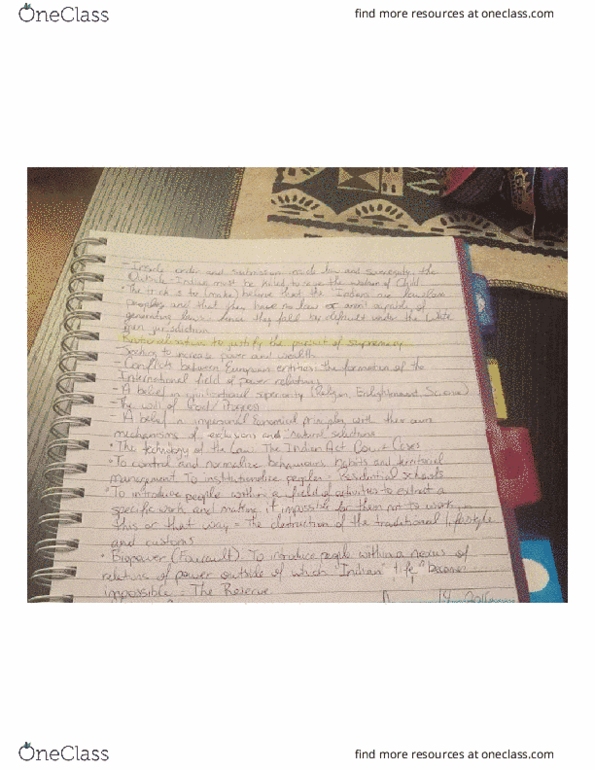 OneClass
find more resources at oneclass.com
- Inside order and submission, inside law and sovereignty, the
Outside - Indian must be
• The trick is to (make) believe that the "Indians are lawless
peoples and that they have no law or aren't capable of
generating laws. Hence they fall by default under the White
Man jurisdiction
Rationalisations to justify the pursuit of Supremacy
Seeking to increase power and wealth
- Conflicts between European entities: the formation of the
International field of power relations
- A belief in superiority (Religion, Enlightenment, Science)
- The will of God / Progress
- A belief in impersonal Economical principles with their own
mechanisms of exclusion and "natural selection"
• The technology of the Law: The Indian Act, Court Cases
• To control and normalize behaviours, habits and territorial
management. To institutionalize peoples: Residential schools
• To introduce people within a field of activities to extract a
specific work and making it impossible for them not to work
this or that way = The destruction of the traditional lifestyle
and customs
• Biopower (Foucault): To introduce people within a nexus of
relations of power outside of which "Indian" life" becomes
impossible: The Reserve
OneClass
find more resources at oneclass.com